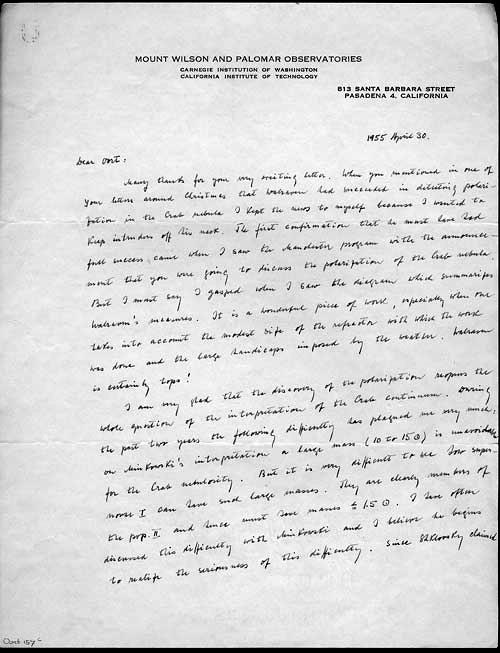 MOUNT WILSON AND PALOMAR OBSERVATORIES
CARNEGIE INSTITUTION OF WASHINGTON
CALIFORNIA INSTITUTE OF TECHNOLOGY
813 SANTA BARBARA STREET
PASADENA 4, CALIFORNIA
1955 April 30.
Dear Oort:
Many thanks for your very exciting letter. When you mentioned in one of
your letters around Christmas that Walraven had succeeded in detecting polari-
zation in the Crab nebula I kept the news to myself because I wanted to
keep intruders off this nest. The first confirmation that he must have had
full success came when I saw the Manchester program with the announce-
ment that you were going to discuss the polarization of the Crab nebula.
But I must say I gasped when I saw the diagram which summarizes
Walraven's measures. It is a wonderful piece of work, especially when one
takes into account the modest size of the refractor with which the work
was done and the large handicaps imposed by the weather. Walraven
is certainly tops!
I am very glad that the discovery of the polarization reopens the
whole question of the interpretation of the Crab continuum. During
the past two years the following difficulty has plagued me very much:
on Minkowski's interpretation a large mass (10 to 15 ⊙) is unavoidable
for the Crab nebulosity. But it is very difficult to see how super-
novae I can have such large masses. They are clearly members of
the pop. II and hence must have masses ≤ 1.5 ⊙. I have often
discussed this difficulty with Minkowski and I believe he begins
to realize the seriousness of this difficulty. Since Shklovsky claimed
Oort 157 c